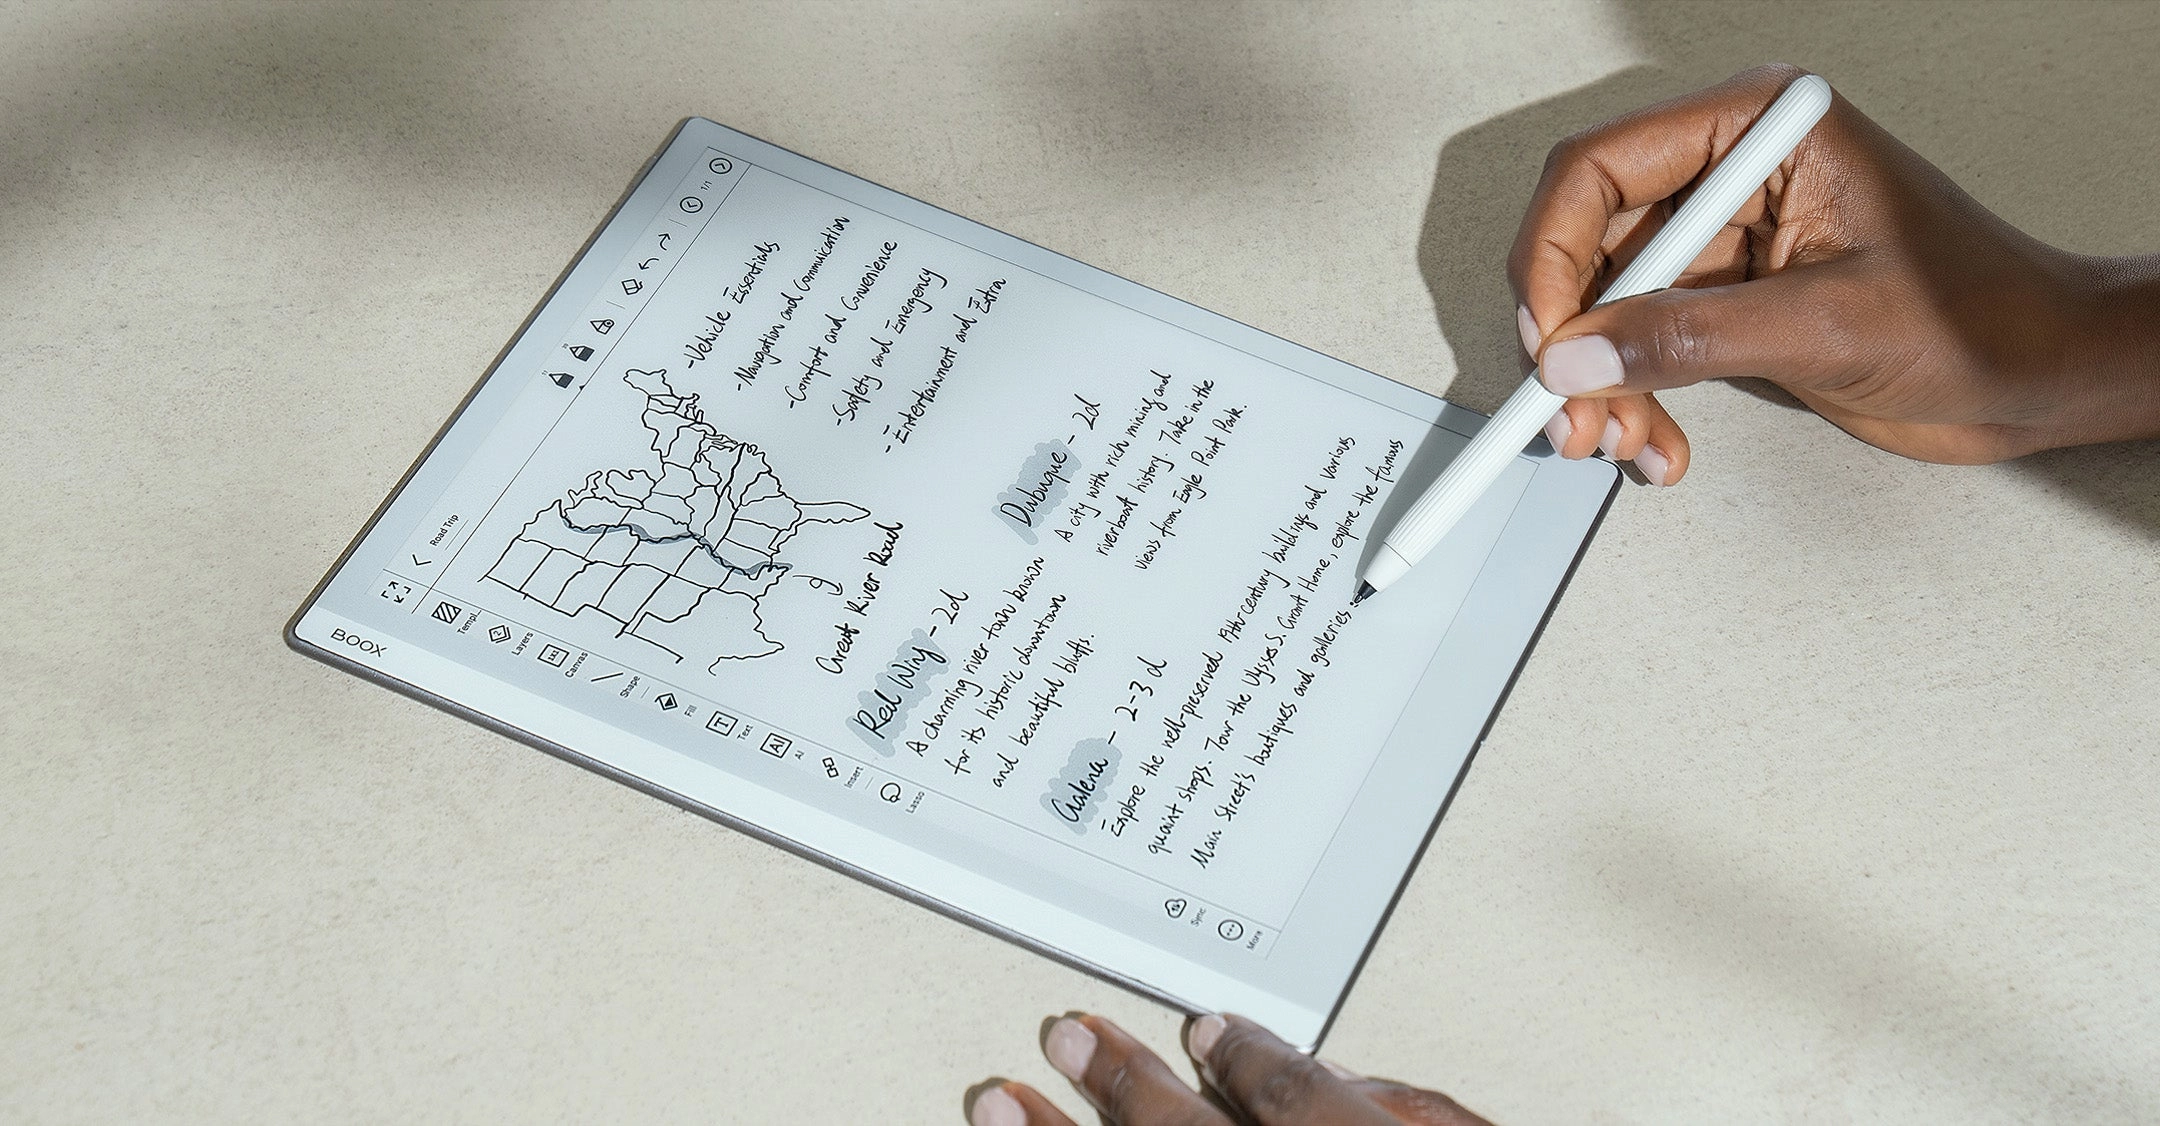 BOOX
Road Trip
1/1
Templ.
Layers
Canvas
Shape
Fill
Text
AI
Insert
Lasso
Sync
More
Great River Road
-Vehicle Essentials
-Navigation and Communication
-Comfort and Convenience
-Safety and Emergency
-Entertainment and Extra
Red Wing - 2d
A charming river town known
for its historic downtown
and beautiful bluffs.
Dubuque - 2d
A city with rich mining and
riverboat history. Take in the
views from Eagle Point Park.
Galena - 2-3 d
Explore the well-preserved 19th-century buildings and various
quaint shops. Tour the Ulysses S. Grant Home, explore the famous
Main Street's boutiques and galleries.